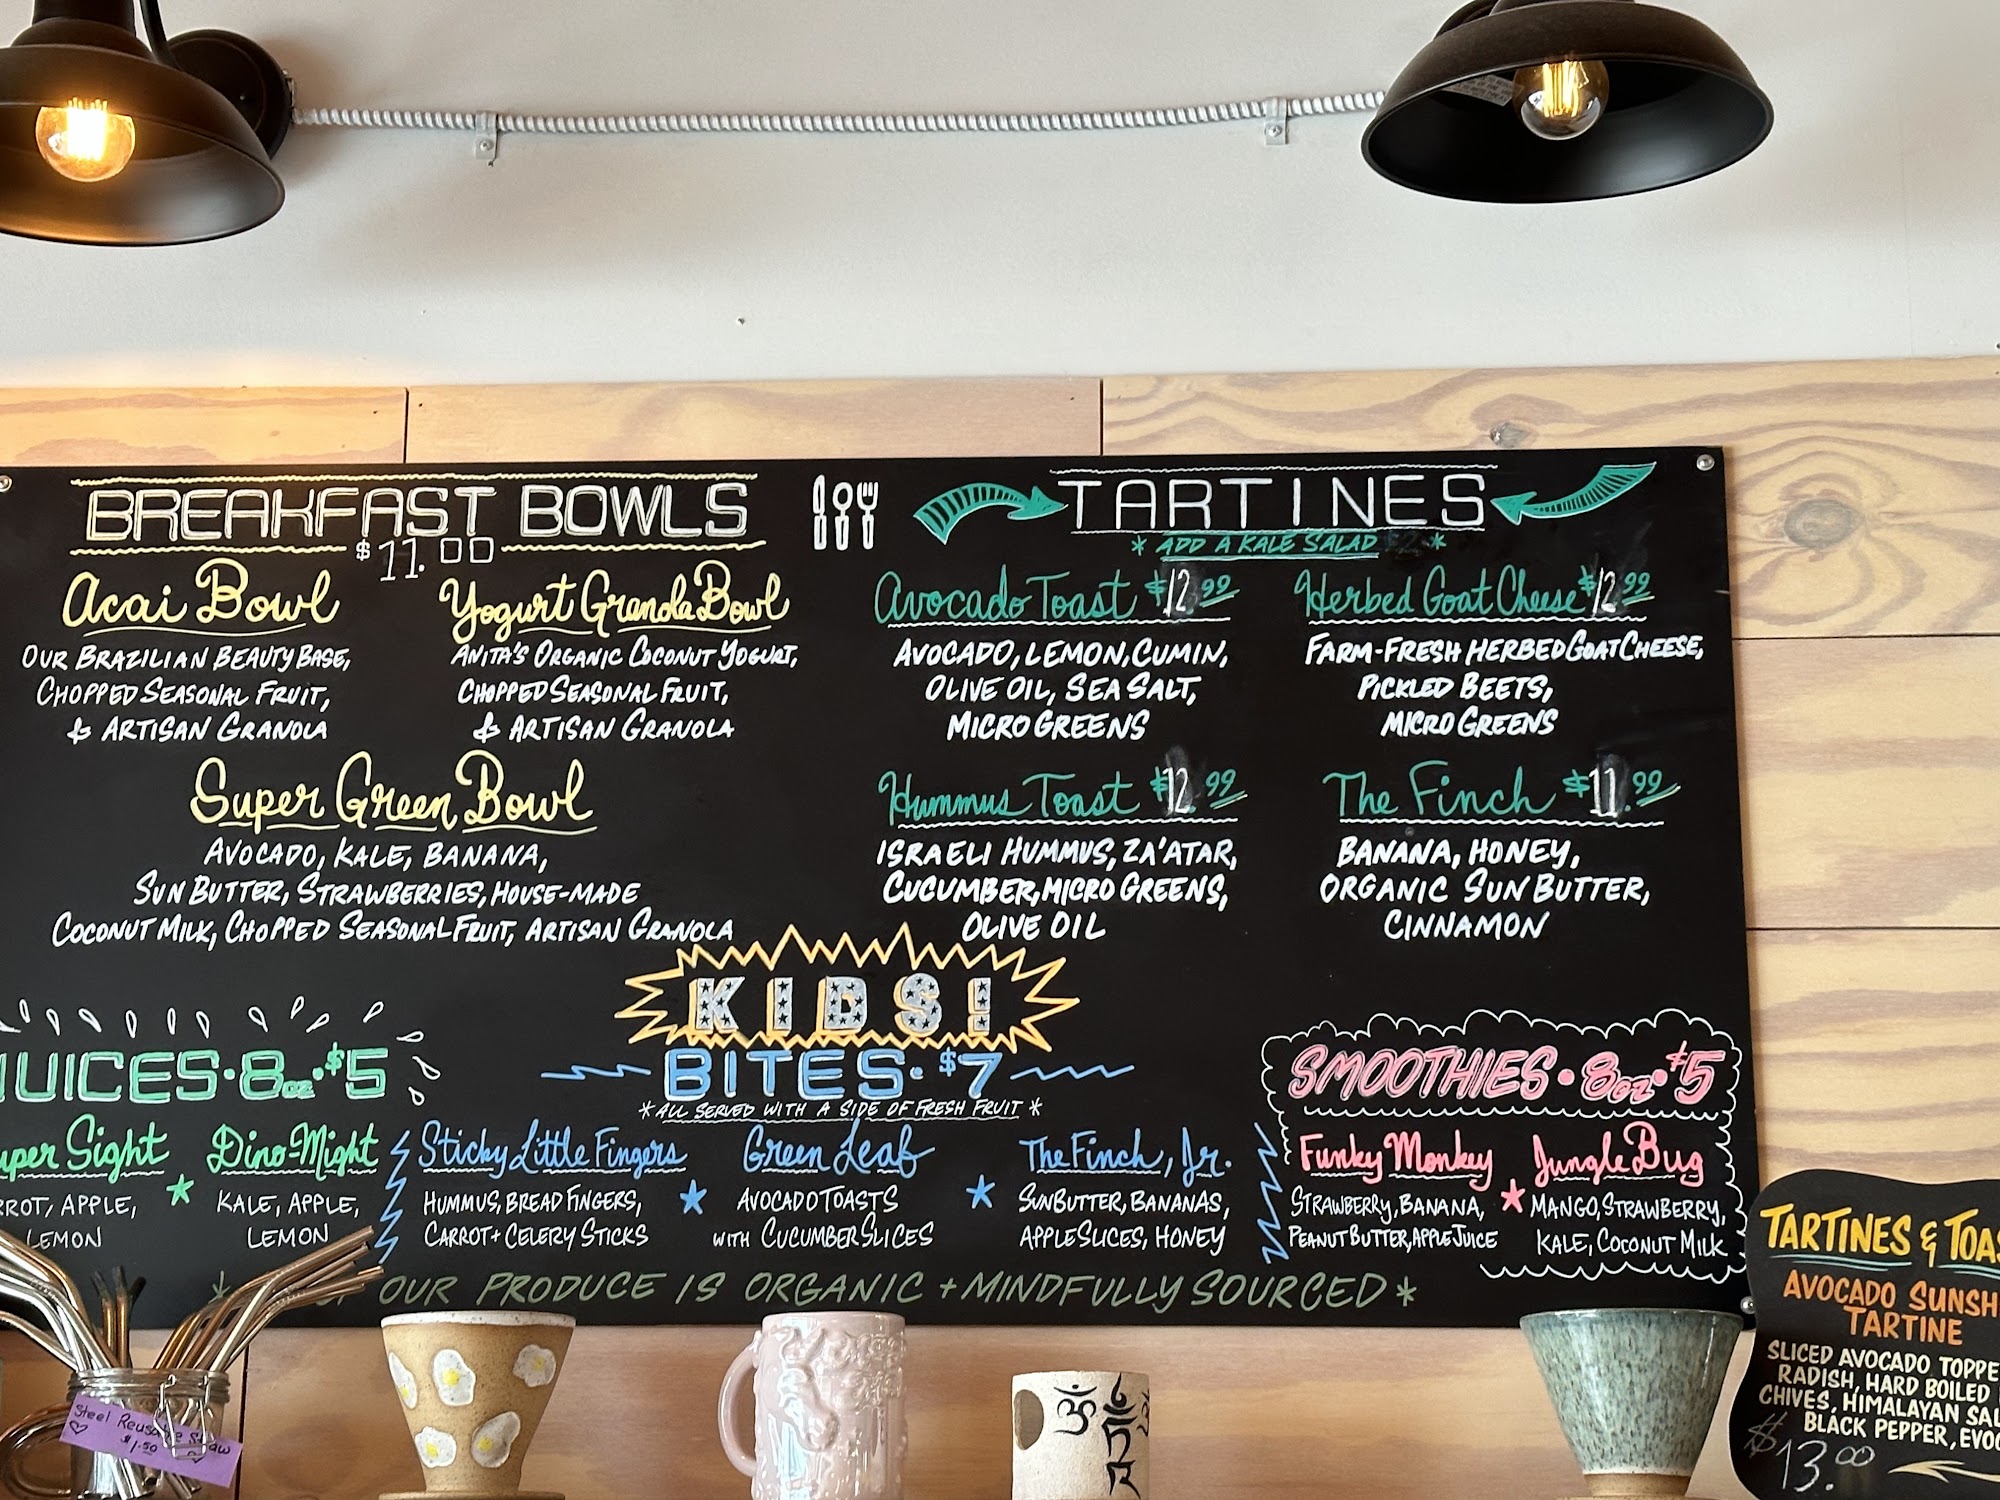 BREAKFAST BOWLS
$11.00
Acai Bowl
OUR BRAZILIAN BEAUTY BASE,
CHOPPED SEASONAL FRUIT,
& ARTISAN GRANOLA
Yogurt Granola Bowl
ANITA'S ORGANIC COCONUT YOGURT,
CHOPPED SEASONAL FRUIT,
& ARTISAN GRANOLA
Super Green Bowl
AVOCADO, KALE, BANANA,
SUN BUTTER, STRAWBERRIES, HOUSE-MADE
COCONUT MILK, CHOPPED SEASONAL FRUIT, ARTISAN GRANOLA
TARTINES
* ADD A KALE SALAD *
Avocado Toast $12.99
AVOCADO, LEMON, CUMIN,
OLIVE OIL, SEA SALT,
MICRO GREENS
Herbed Goat Cheese $12.99
FARM-FRESH HERBED GOAT CHEESE,
PICKLED BEETS,
MICRO GREENS
Hummus Toast $12.99
ISRAELI HUMMUS, ZA'ATAR,
CUCUMBER, MICRO GREENS,
OLIVE OIL
The Finch $11.99
BANANA, HONEY,
ORGANIC SUN BUTTER,
CINNAMON
KIDS!
JUICES • 8oz • $5
Sight
APPLE,
LEMON
Dino-Might
KALE, APPLE,
LEMON
BITES • $7
* ALL SERVED WITH A SIDE OF FRESH FRUIT *
Sticky Little Fingers
HUMMUS, BREAD FINGERS,
CARROT + CELERY STICKS
Green Leaf
AVOCADO TOASTS
WITH CUCUMBER SLICES
The Finch, Jr.
SUNBUTTER, BANANAS,
APPLE SLICES, HONEY
SMOOTHIES • 8oz • $5
Funky Monkey
STRAWBERRY, BANANA,
PEANUT BUTTER, APPLE JUICE
Jungle Bug
MANGO, STRAWBERRY,
KALE, COCONUT MILK
OUR PRODUCE IS ORGANIC + MINDFULLY SOURCED *
TARTINES &
AVOCADO
TARTINE
SLICED AVOCADO
RADISH, HARD BOILED
CHIVES, HIMALAYAN
BLACK PEPPER,
$13.00
Steel Reusable Straw
$1.50